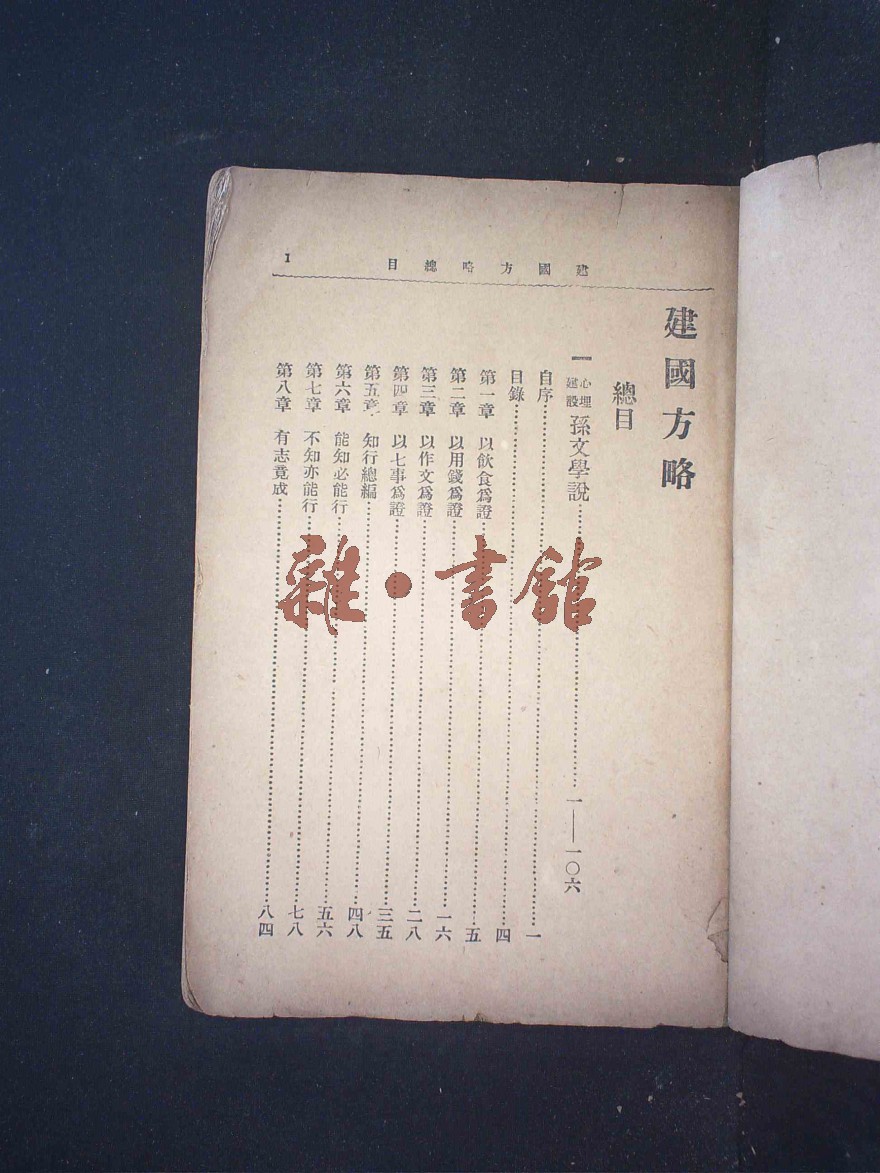 建國方略總目 1
建國方略
總目
一 心理建設 孫文學說……一——一〇六
自序……一
目錄……四
第一章 以飲食爲證……五
第二章 以用錢爲證……一六
第三章 以作文爲證……二八
第四章 以七事爲證……三五
第五章 知行總編……四八
第六章 能知必能行……五六
第七章 不知亦能行……七八
第八章 有志竟成……八四
雜·書館